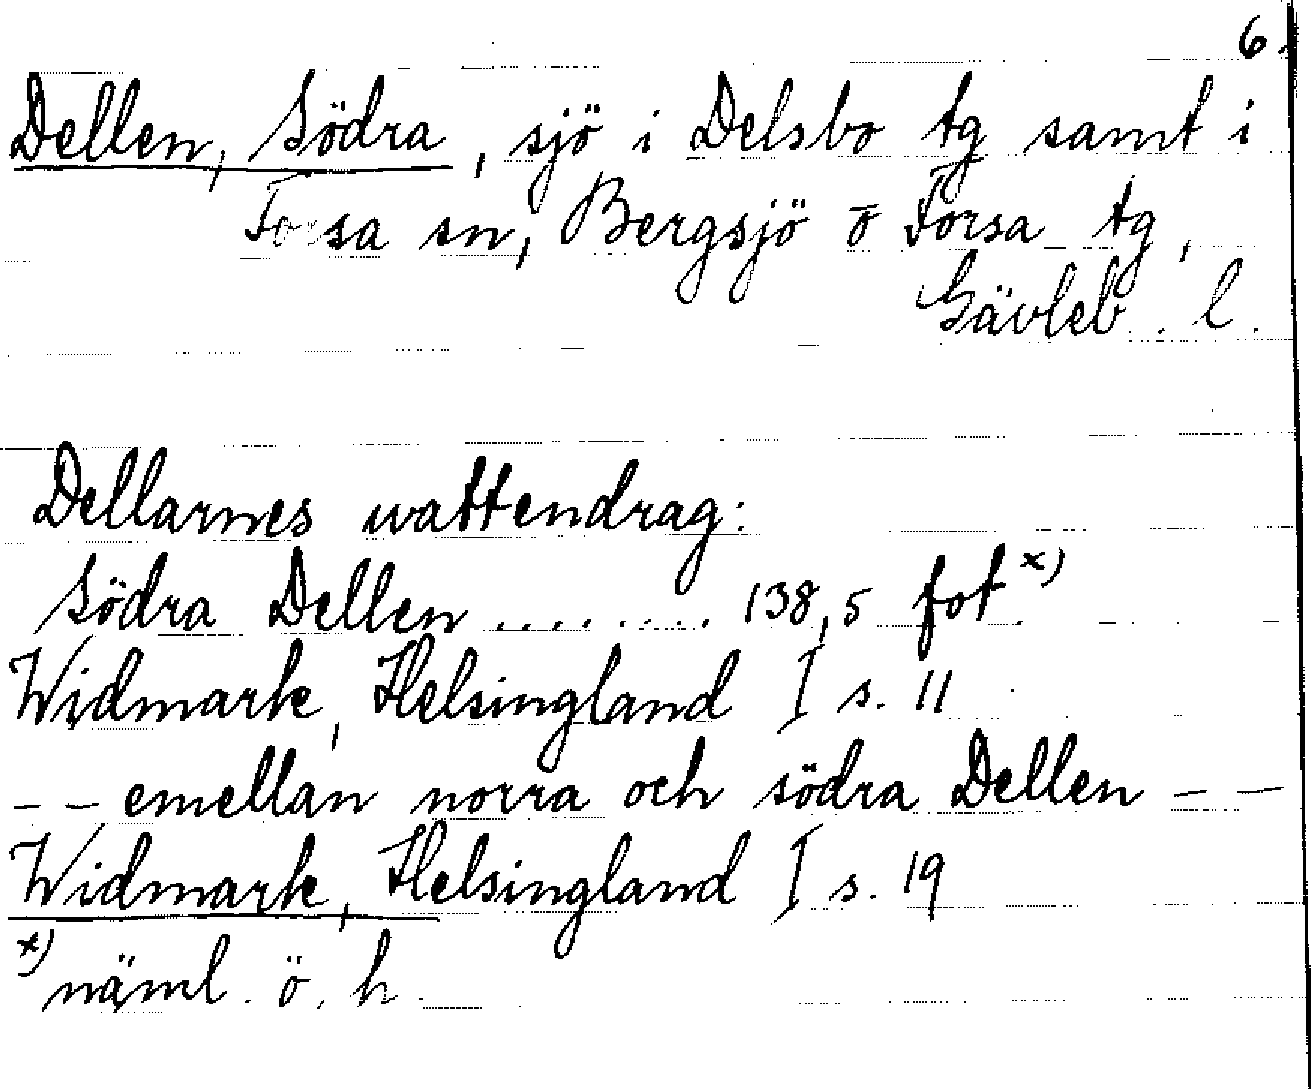 6.
Dellen, Södra, sjö i Delsbo tg samt i
Forsa sn, Bergsjö o Forsa tg,
Gävleb. l.
Dellarnes wattendrag:
Södra Dellen ........ 138,5 fot x)
Widmark, Helsingland I s. 11
– – emellan norra och södra Dellen – –
Widmark, Helsingland I s. 19
x) näml. ö. h.